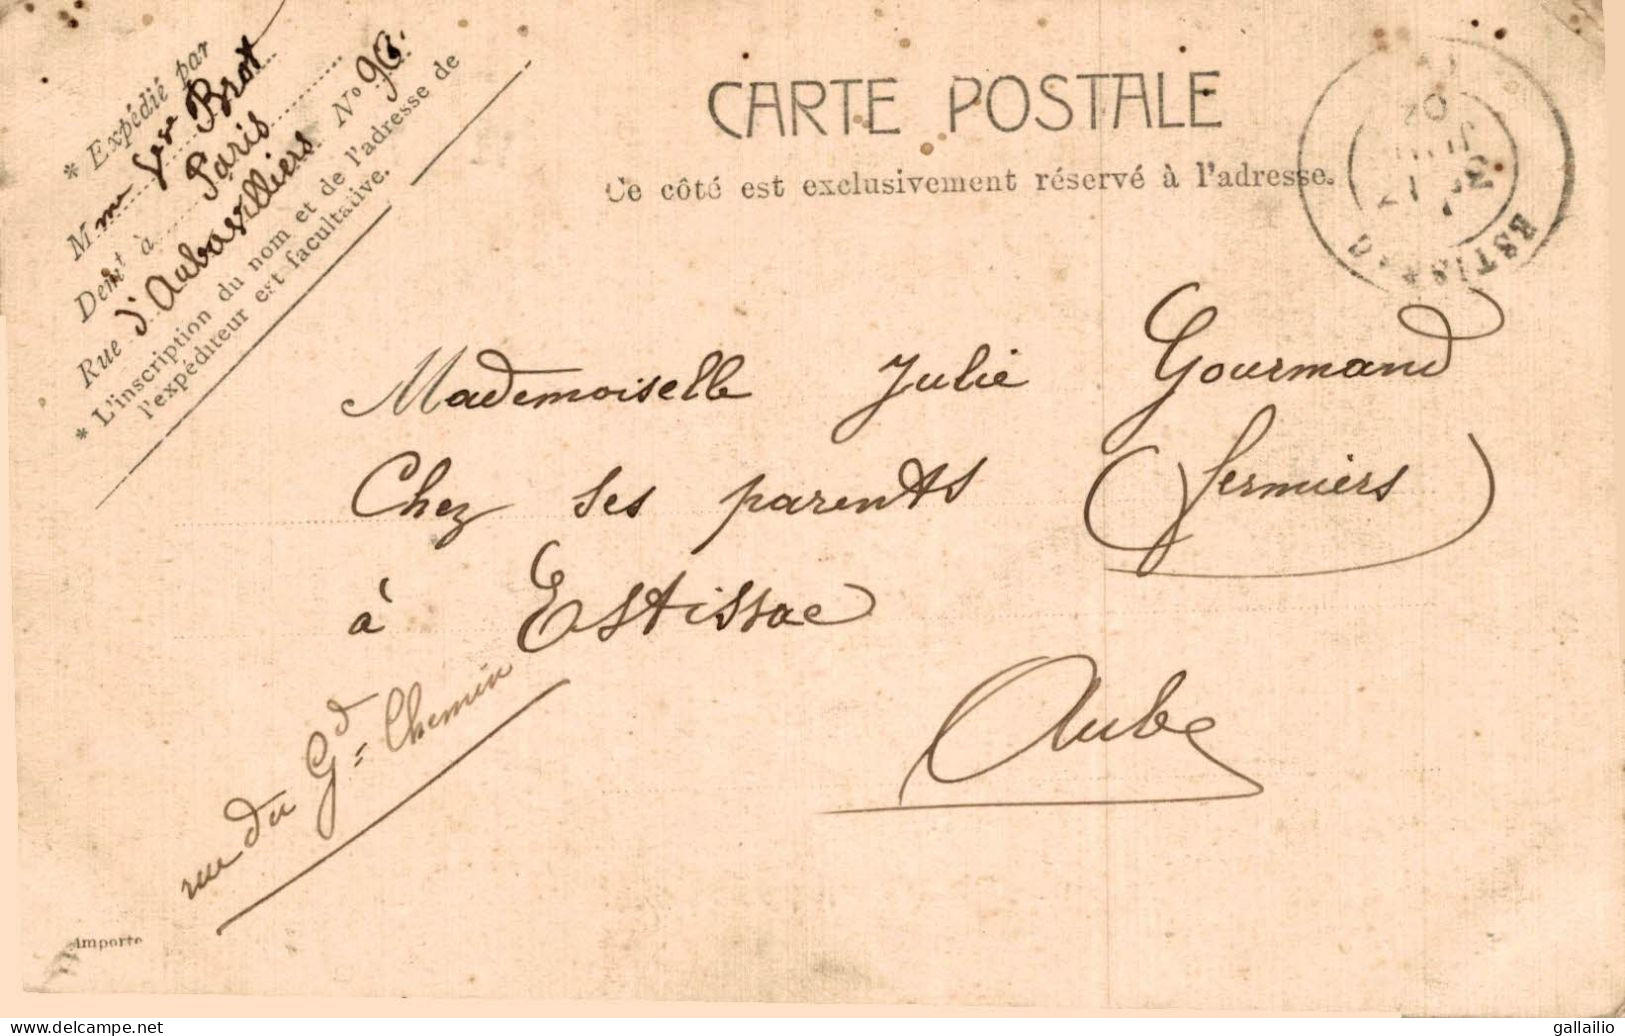 * Expédié par
Mme Brot
Demt à Paris
Rue d'Aubervilliers No 90.
* L'inscription du nom et de l'adresse de
l'expéditeur est facultative.
CARTE POSTALE
Ce côté est exclusivement réservé à l'adresse.
ESTISSAC
02
Mademoiselle Julie Gourmand
Chez ses parents (fermiers)
à Estissac
Aube
rue du Gd = Chemin
Importé
gallailio